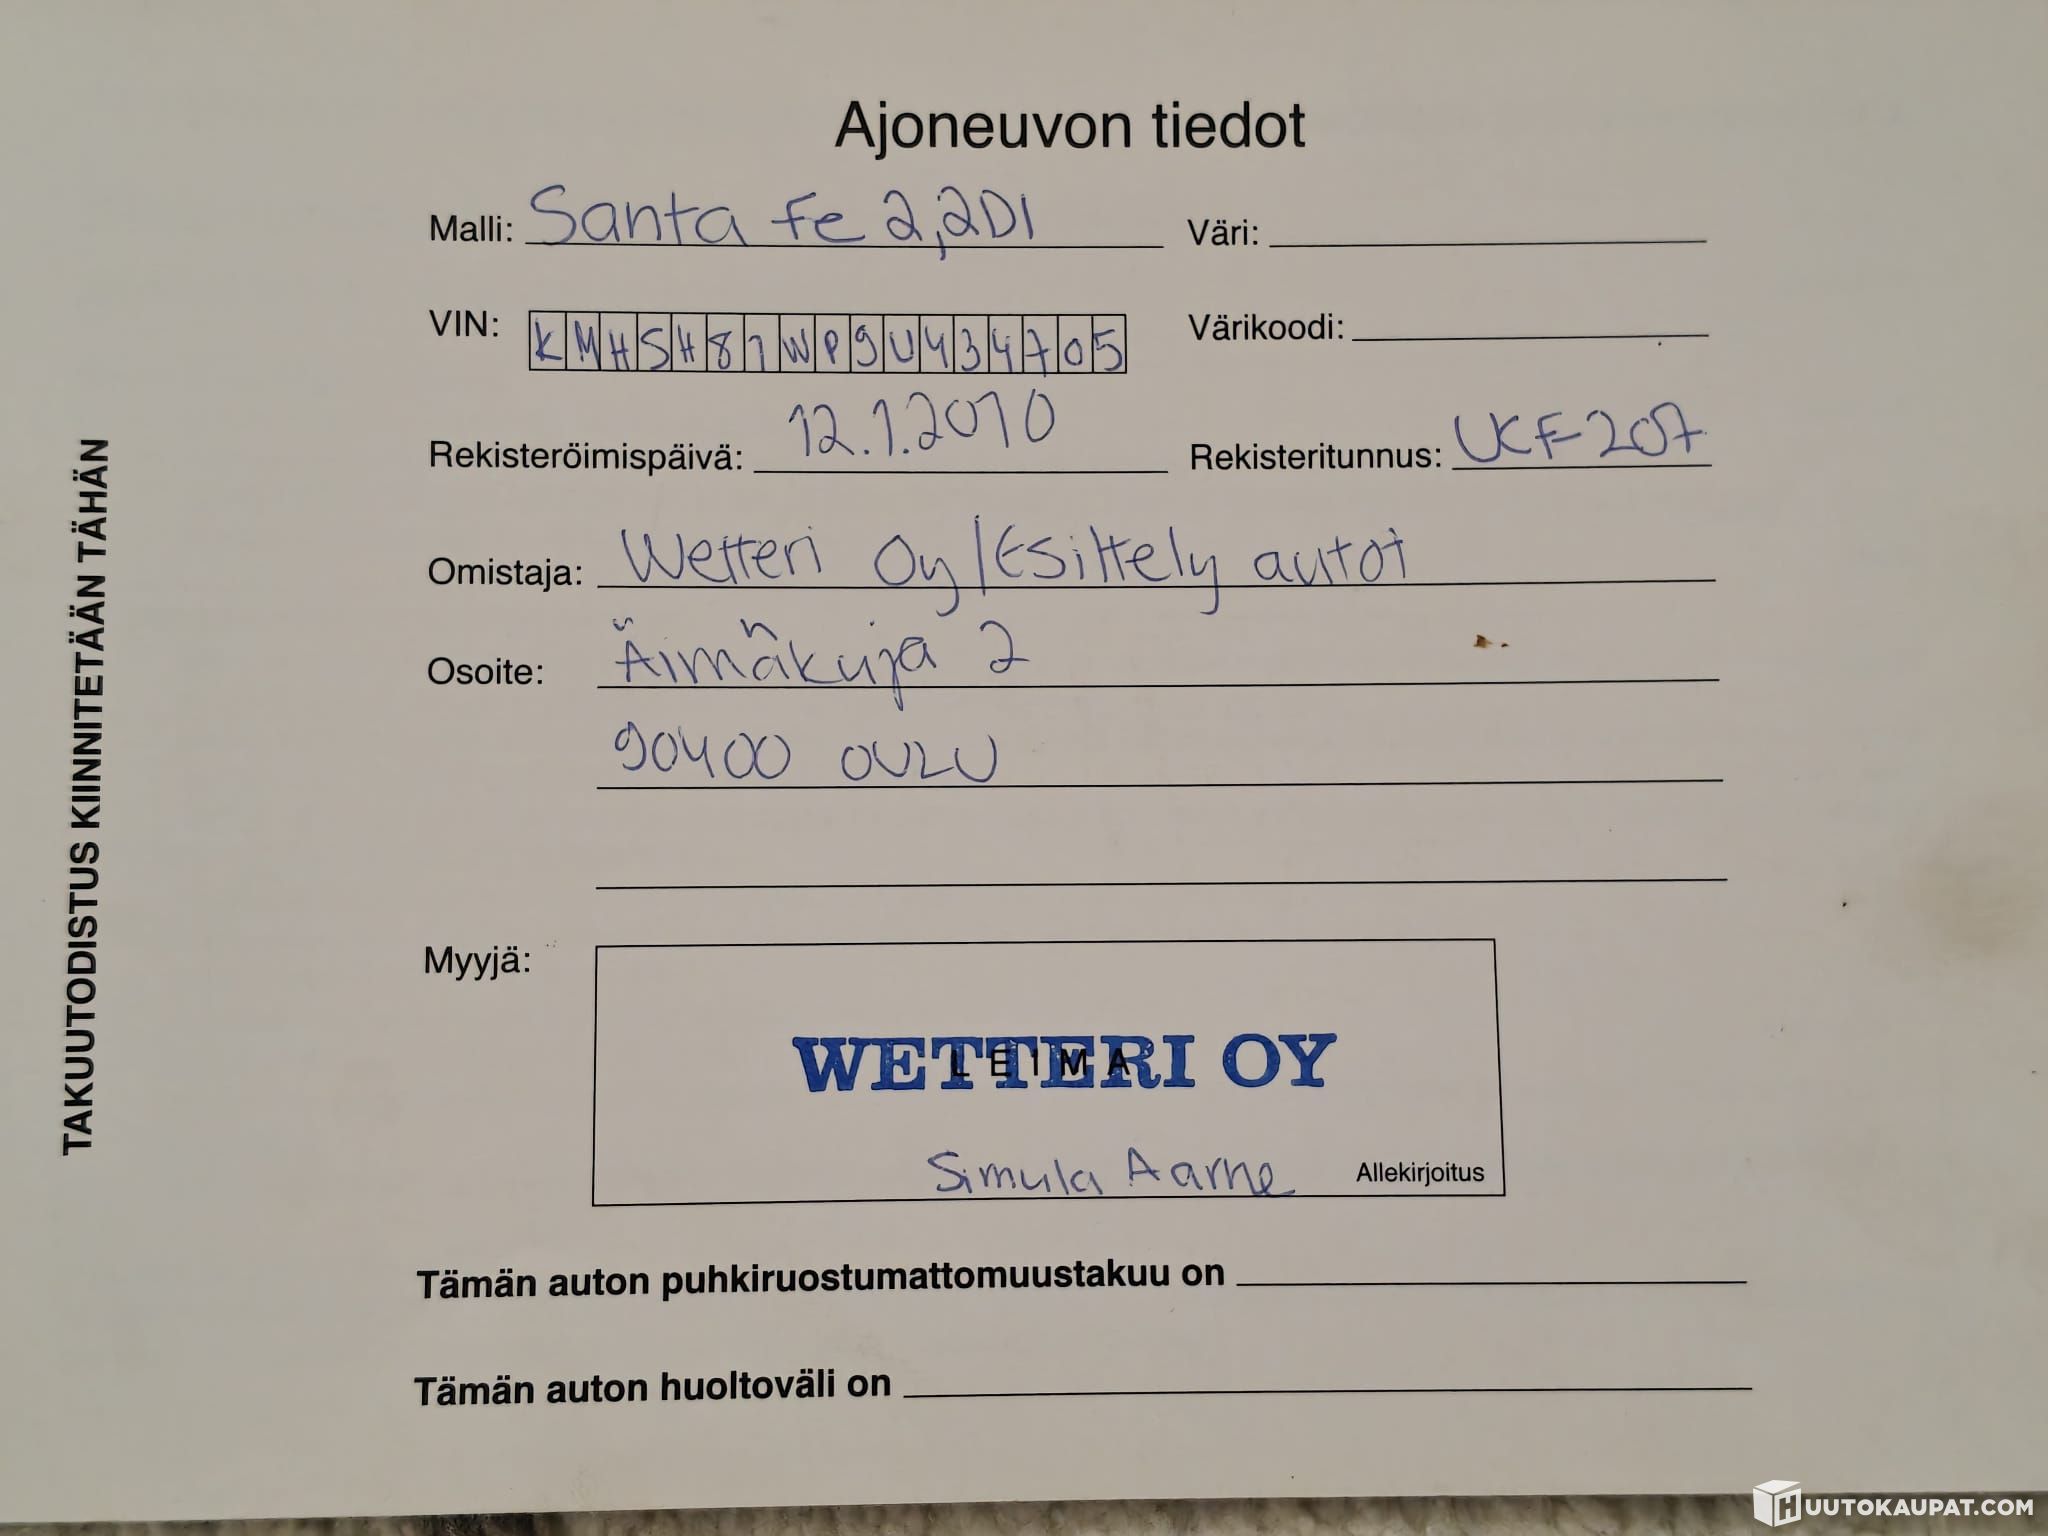 Ajoneuvon tiedot
Malli: Santa Fe 2,2DI Väri:
VIN: KMHSH81WP9U434705 Värikoodi:
Rekisteröimispäivä: 12.1.2010 Rekisteritunnus: UCF-207
Omistaja: Wetteri Oy/Esittely autot
Osoite: Äimäkuja 2
90400 OULU
Myyjä:
WETTERI OY
LEIMA
Simula Aarne Allekirjoitus
Tämän auton puhkiruostumattomuustakuu on
Tämän auton huoltoväli on
TAKUUTODISTUS KIINNITETÄÄN TÄHÄN
HUUTOKAUPAT.COM